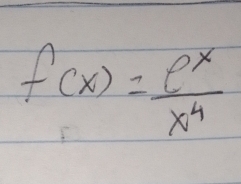 f(x) = e^x / x^4